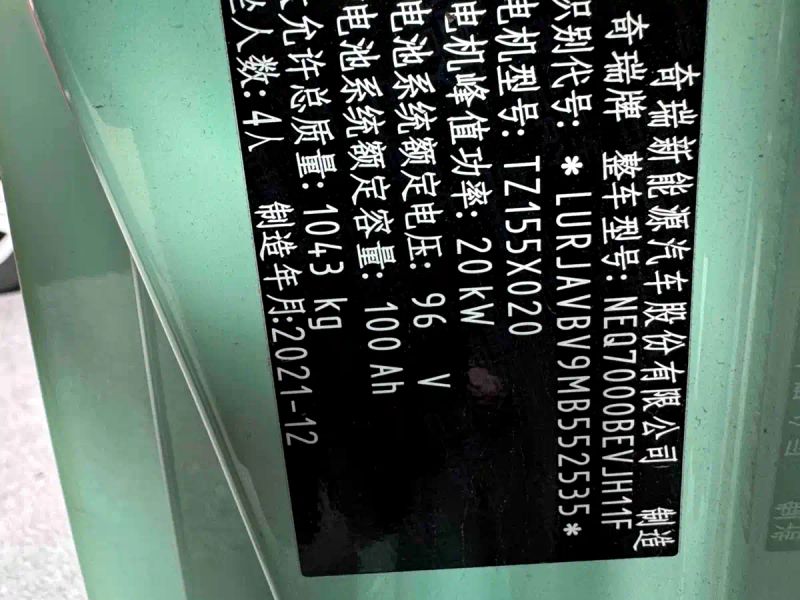 奇瑞新能源汽车股份有限公司 制造
奇瑞牌 整车型号: NEQ7000BEVJH11F
识别代号: *LURJAVBV9MB552535*
电机型号: TZ155X020
电机峰值功率: 20kW
电池系统额定电压: 96 V
电池系统额定容量: 100 Ah
大允许总质量: 1043 kg
坐人数: 4人 制造年月: 2021-12